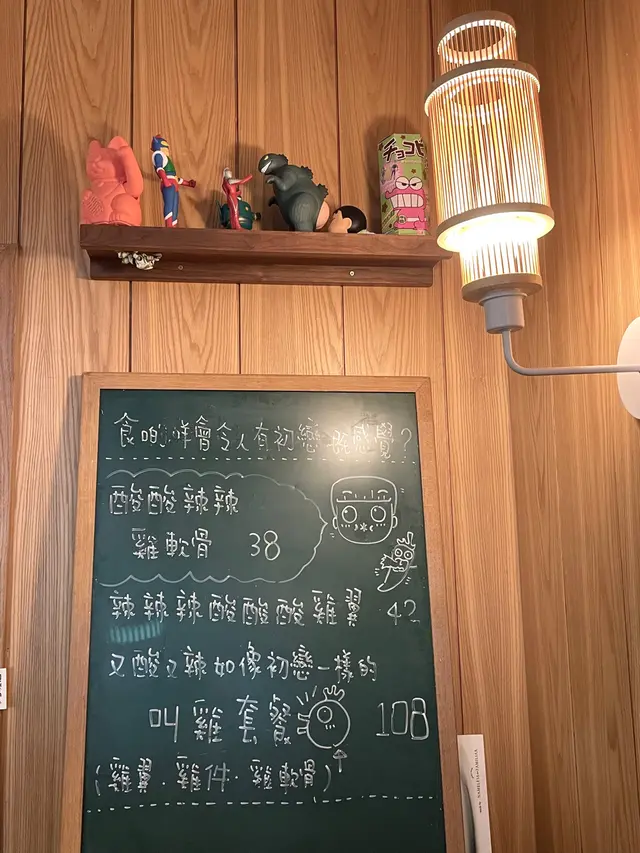 チョコビ
食啲咩會令人有初戀嘅感覺?
酸酸辣辣
雞軟骨 38
辣辣辣酸酸酸雞翼 42
又酸又辣如像初戀一樣的
叫雞套餐 108
(雞翼.雞件.雞軟骨)